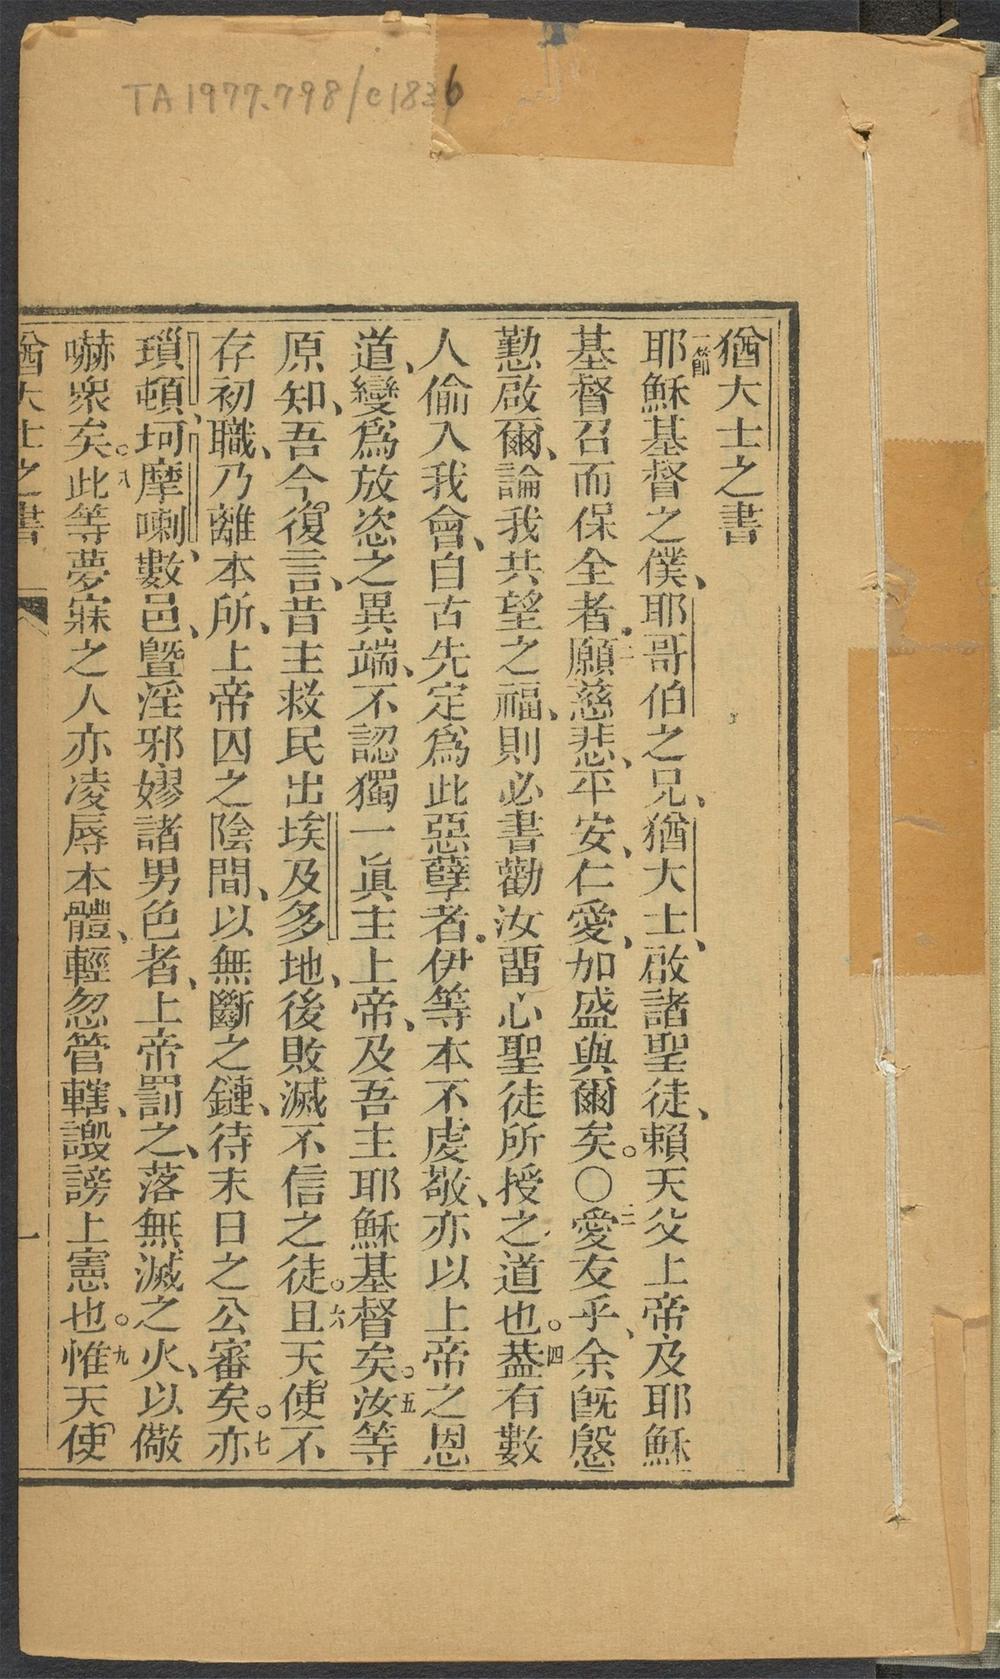 TA 1977.798/c1836
猶大士之書
一節耶穌基督之僕、耶哥伯之兄、猶大士、啟諸聖徒、賴天父上帝及耶穌
基督召而保全者.二願慈悲、平安、仁愛、加盛與爾矣。○三愛友乎、余旣慇
懃啟爾、論我共望之福、則必書勸汝畱心聖徒所授之道也。四葢有數
人偷入我會、自古先定爲此惡孽者.伊等本不虔敬、亦以上帝之恩
道、變爲放恣之異端、不認獨一眞主上帝、及吾主耶穌基督矣。五汝等
原知、吾今復言、昔主救民出埃及多地、後敗滅不信之徒。六且天使不
存初職、乃離本所、上帝囚之陰間、以無斷之鏈、待末日之公審矣。七亦
瑣頓、坷摩喇、數邑、曁淫邪嫪諸男色者、上帝罰之、落無滅之火、以儆
嚇衆矣。八此等夢寐之人亦凌辱本體、輕忽管轄、譭謗上憲也。九惟天使
猶大士之書 一